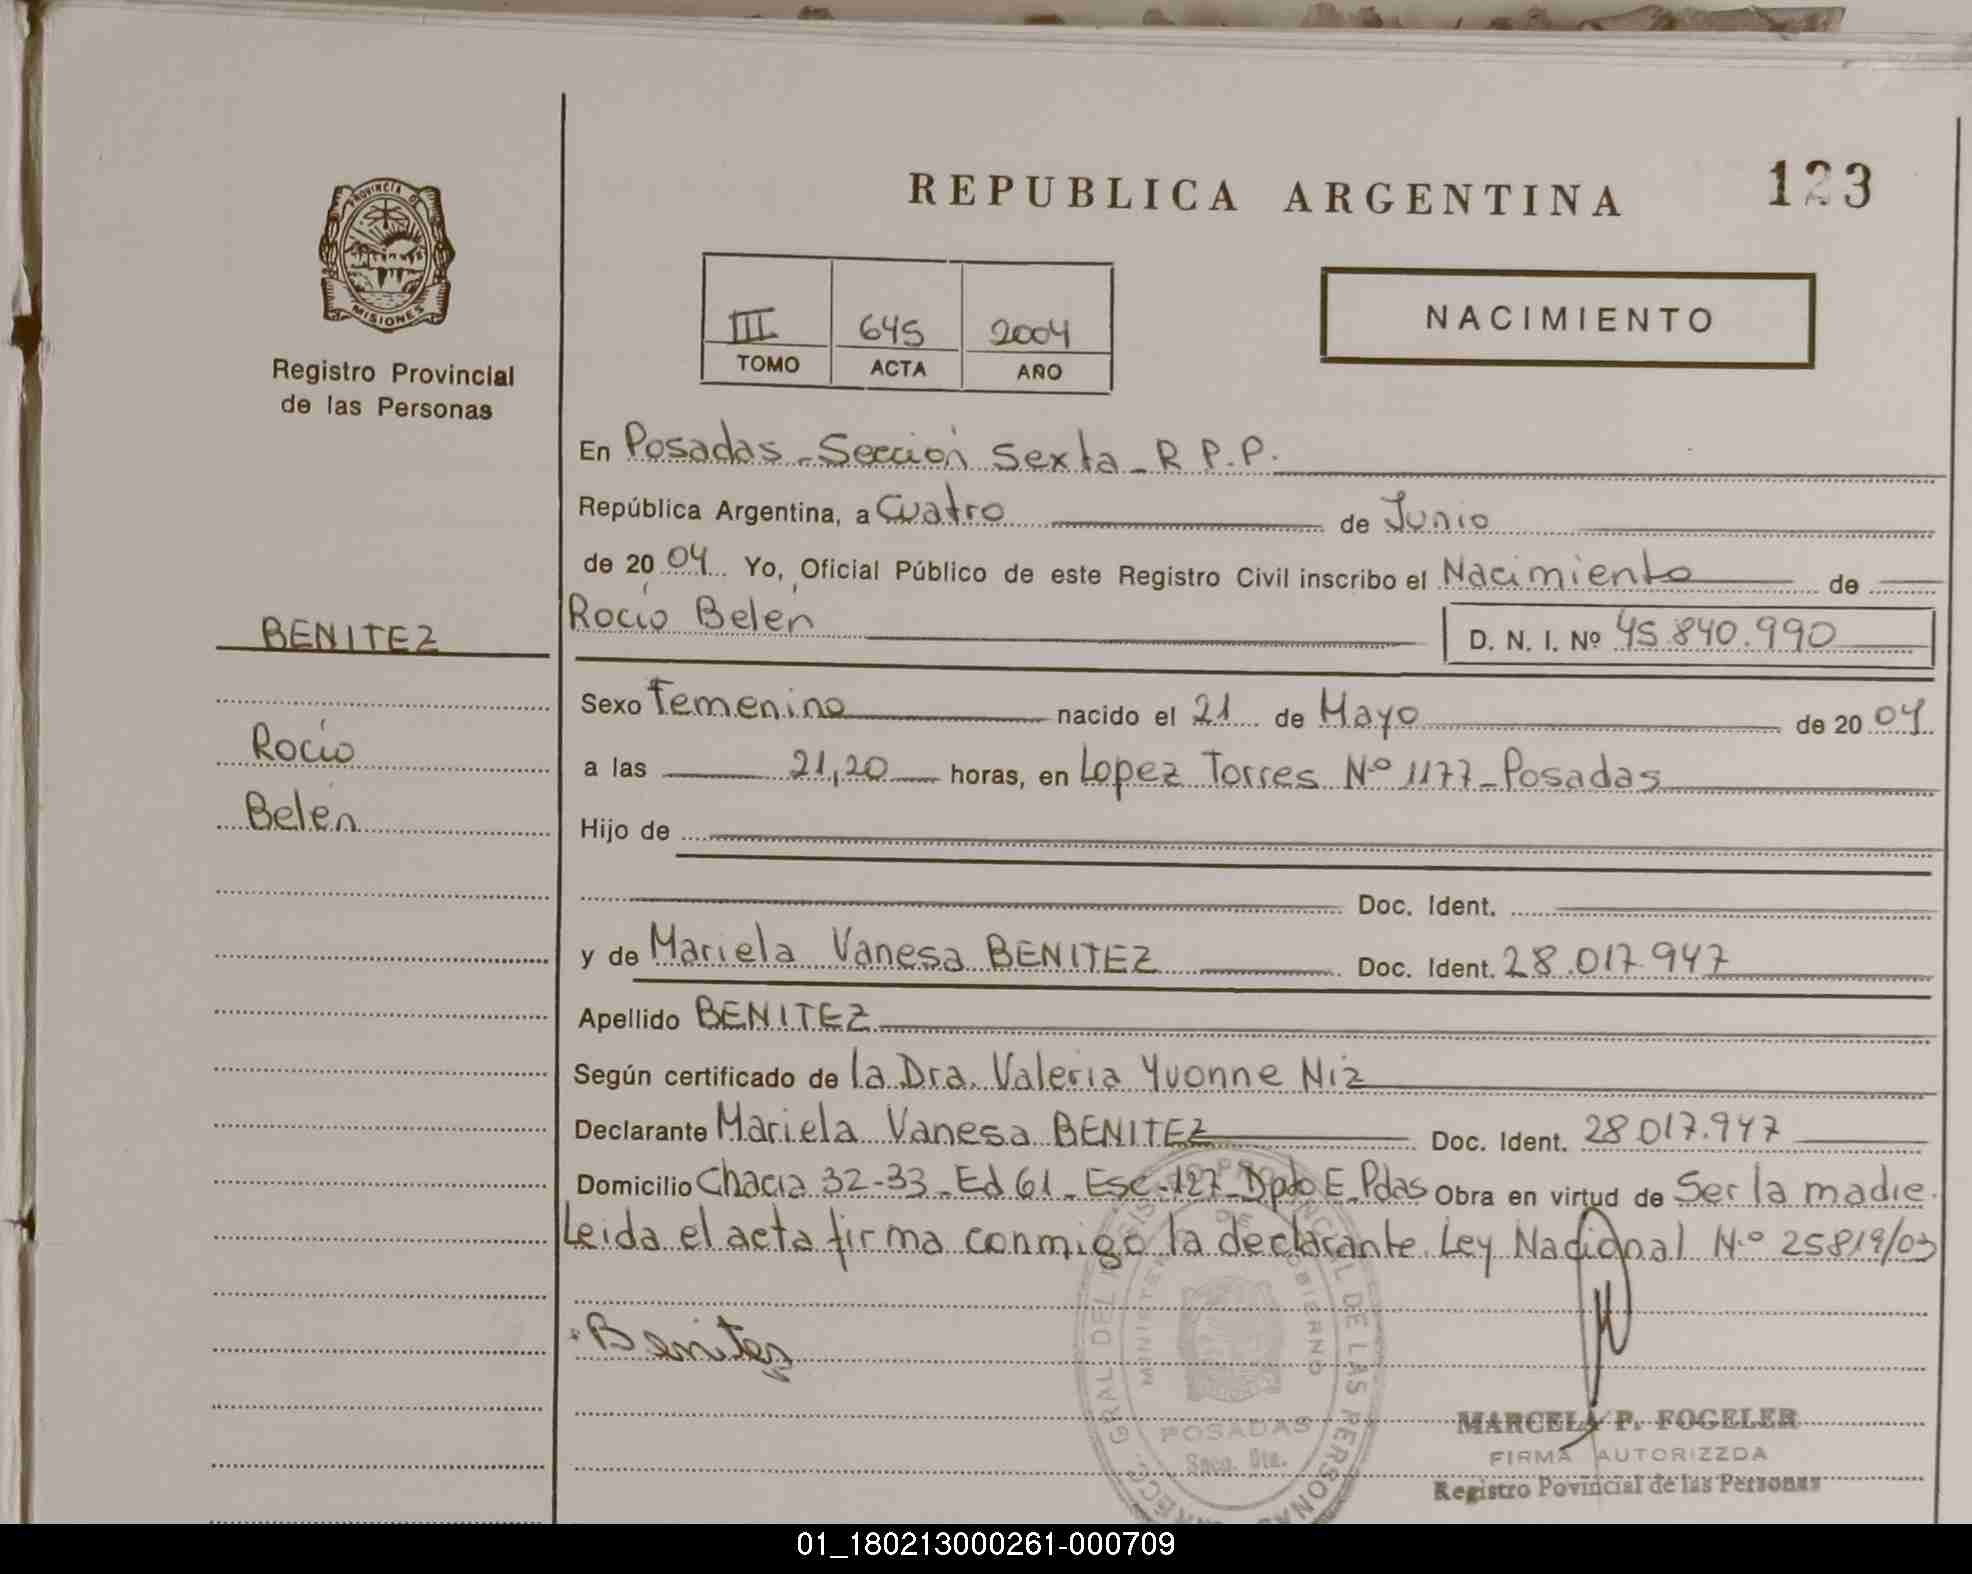 REPUBLICA ARGENTINA
123
PROVINCIA DE
MISIONES
Registro Provincial
de las Personas
III
645
2004
TOMO
ACTA
AÑO
NACIMIENTO
En Posadas - Sección Sexta - R P.P.
República Argentina, a Cuatro de Junio
de 2004 Yo, Oficial Público de este Registro Civil inscribo el Nacimiento de
Rocío Belén
D. N. I. Nº 45.840.990
BENITEZ
Rocío
Belén
Sexo Femenino nacido el 21 de Mayo de 2004
a las 21,20 horas, en Lopez Torres Nº 1177 - Posadas
Hijo de
Doc. Ident.
y de Mariela Vanesa BENITEZ Doc. Ident. 28.017.947
Apellido BENITEZ
Según certificado de la Dra. Valeria Yvonne Niz
Declarante Mariela Vanesa BENITEZ Doc. Ident. 28.017.947
Domicilio Chacra 32-33 - Ed 61 - Esc - 127 - Dpto E - Pdas Obra en virtud de Ser la madre.
Leida el acta firma conmigo la declarante. Ley Nacional N.º 25819/03
Benitez
POSADAS
MARCELA P. FOGELER
FIRMA AUTORIZZDA
Registro Povincial de las Personas
01_180213000261-000709